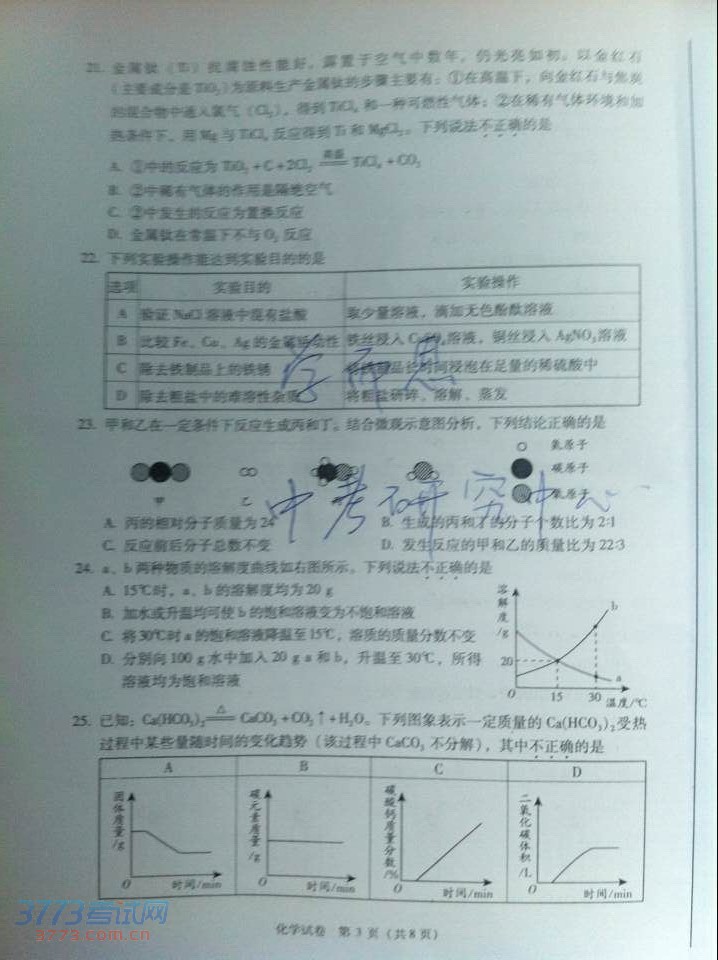 21. 金属钛（Ti）抗腐蚀性能好，露置于空气中数年，仍光亮如初。以金红石
（主要成分是TiO₂）为原料生产金属钛的步骤主要有：①在高温下，向金红石与焦炭
的混合物中通入氯气（Cl₂），得到TiCl₄和一种可燃性气体；②在稀有气体环境和加
热条件下，用Mg与TiCl₄反应得到Ti和MgCl₂。下列说法不正确的是
A. ①中的反应为TiO₂+C+2Cl₂ 高温 TiCl₄+CO₂
B. ②中稀有气体的作用是隔绝空气
C. ②中发生的反应为置换反应
D. 金属钛在常温下不与O₂反应
22. 下列实验操作能达到实验目的的是
选项 实验目的 实验操作
A 验证NaCl溶液中混有盐酸 取少量溶液，滴加无色酚酞溶液
B 比较Fe、Cu、Ag的金属活动性 铁丝浸入CuSO₄溶液，铜丝浸入AgNO₃溶液
C 除去铁制品上的铁锈 将铁制品长时间浸泡在足量的稀硫酸中
D 除去粗盐中的难溶性杂质 将粗盐研碎、溶解、蒸发
学而思
23. 甲和乙在一定条件下反应生成丙和丁。结合微观示意图分析，下列结论正确的是
氢原子
碳原子
氧原子
甲 乙
中考研究中心
A. 丙的相对分子质量为24 B. 生成的丙和丁的分子个数比为2:1
C. 反应前后分子总数不变 D. 发生反应的甲和乙的质量比为22:3
24. a、b两种物质的溶解度曲线如右图所示。下列说法不正确的是
A. 15℃时，a、b的溶解度均为20 g
B. 加水或升温均可使b的饱和溶液变为不饱和溶液
C. 将30℃时a的饱和溶液降温至15℃，溶质的质量分数不变
D. 分别向100 g水中加入20 g a和b，升温至30℃，所得
溶液均为饱和溶液
溶解度/g
b
20
a
0 15 30 温度/℃
25. 已知：Ca(HCO₃)₂ △ CaCO₃+CO₂↑+H₂O。下列图象表示一定质量的Ca(HCO₃)₂受热
过程中某些量随时间的变化趋势（该过程中CaCO₃不分解），其中不正确的是
A B C D
固体质量/g 碳元素质量/g 碳酸钙质量分数/% 二氧化碳体积/L
0 时间/min 0 时间/min 0 时间/min 0 时间/min
化学试卷 第3页（共8页）
3773考试网
3773.com.cn